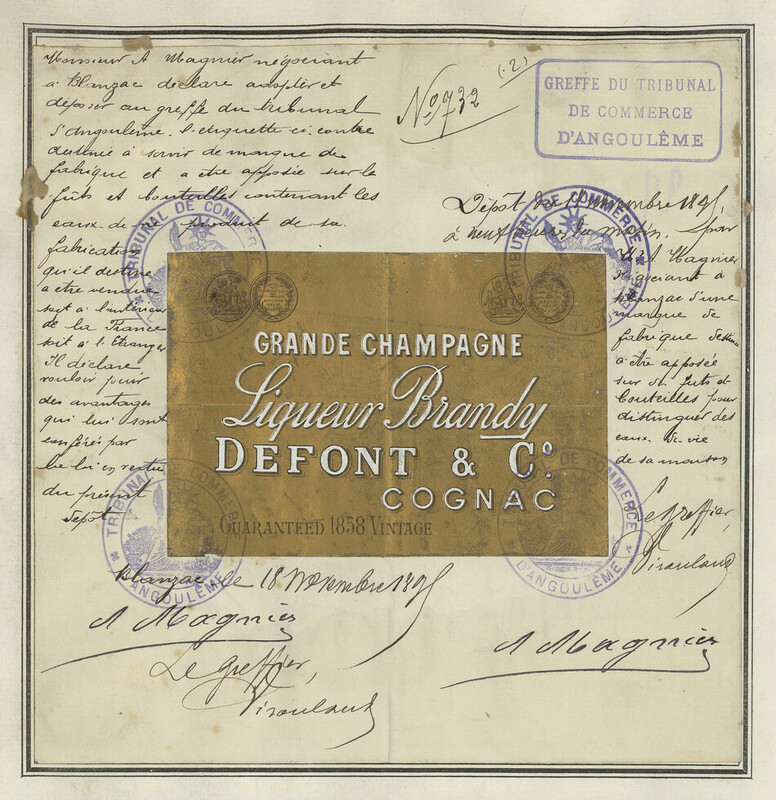 Monsieur A Magnier négociant
à Blanzac déclare adopter et
déposer au greffe du tribunal
d'Angoulême l'etiquette ci contre
destinée à servir de marque de
fabrique et a être apposée sur le
fûts et bouteilles contenant les
eaux-de-vie produit de sa
fabrication
qu'il destine
a etre vendue
soit à l'interieur
de la France
soit à l'Etranger
Il déclare
vouloir jouir
des avantages
qui lui sont
conférés par
la loi en vertu
du présent
dépôt
Blanzac le 18 Novembre 189
A Magnier
Le Greffier,
No 732
(.2)
GREFFE DU TRIBUNAL
DE COMMERCE
D'ANGOULÊME
Dépôt du novembre 189
à neuf heures du matin, par
Mr A Magnier
négociant à
Blanzac d'une
marque de
fabrique destinée
a être apposée
sur des futs et
bouteilles pour
distinguer des
eaux de vie
de sa maison
Le Greffier,
A Magnier
GRANDE CHAMPAGNE
Liqueur Brandy
DEFONT & Co
COGNAC
GUARANTEED 1858 VINTAGE
TRIBUNAL DE COMMERCE
D'ANGOULÊME
TRIBUNAL DE COMMERCE
D'ANGOULÊME
TRIBUNAL DE COMMERCE
D'ANGOULÊME
TRIBUNAL DE COMMERCE
D'ANGOULÊME